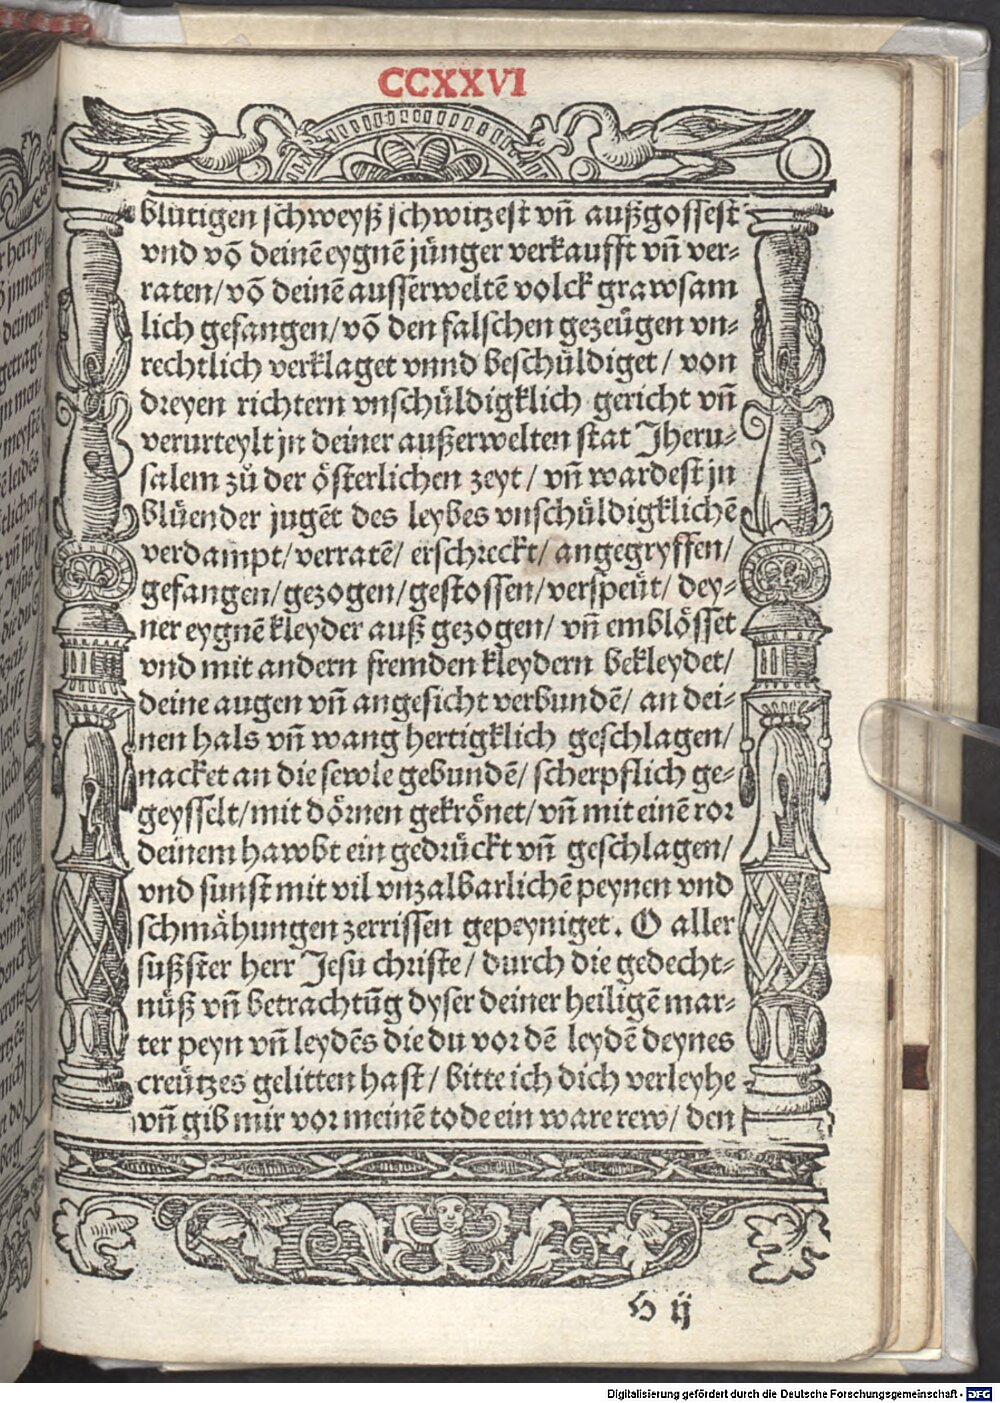 CCXXVI
blůtigen schweyß schwitzest vñ außgossest
vnd võ deinē eygnē jünger verkaufft vñ ver⸗
raten/ võ deinē ausserweltē volck grawsam
lich gefangen/ võ den falschen gezeügen vn⸗
rechtlich verklaget vnnd beschüldiget/ von
dreyen richtern vnschüldigklich gericht vñ
verurteylt jn deiner außerwelten stat Jheru⸗
salem zů der österlichen zeyt/ vñ wardest jn
blüender jugēt des leybes vnschüldigklichē
verdampt/ verratē/ erschreckt/ angegryffen/
gefangen/ gezogen/ gestossen/ verspeüt/ dey⸗
ner eygnē kleyder auß gezogen/ vñ emblösset
vnd mit andern fremden kleydern bekleydet/
deine augen vñ angesicht verbundē/ an dei⸗
nen hals vñ wang hertigklich geschlagen/
nacket an die sewle gebundē/ scherpflich ge⸗
geysselt/ mit dörnen gekrönet/ vñ mit einē ror
deinem hawbt ein gedrückt vñ geschlagen/
vnd sunst mit vil vnzalbarlichē peynen vnd
schmähungen zerrissen gepeyniget. O aller
süßster herr Jesu christe/ durch die gedecht⸗
nüß vñ betrachtūg dyser deiner heiligē mar⸗
ter peyn vñ leydēs die du vor dē leydē deynes
creützes gelitten hast/ bitte ich dich verleyhe
vñ gib mir vor meinē tode ein ware rew/ den
H ij
Digitalisierung gefördert durch die Deutsche Forschungsgemeinschaft - DFG